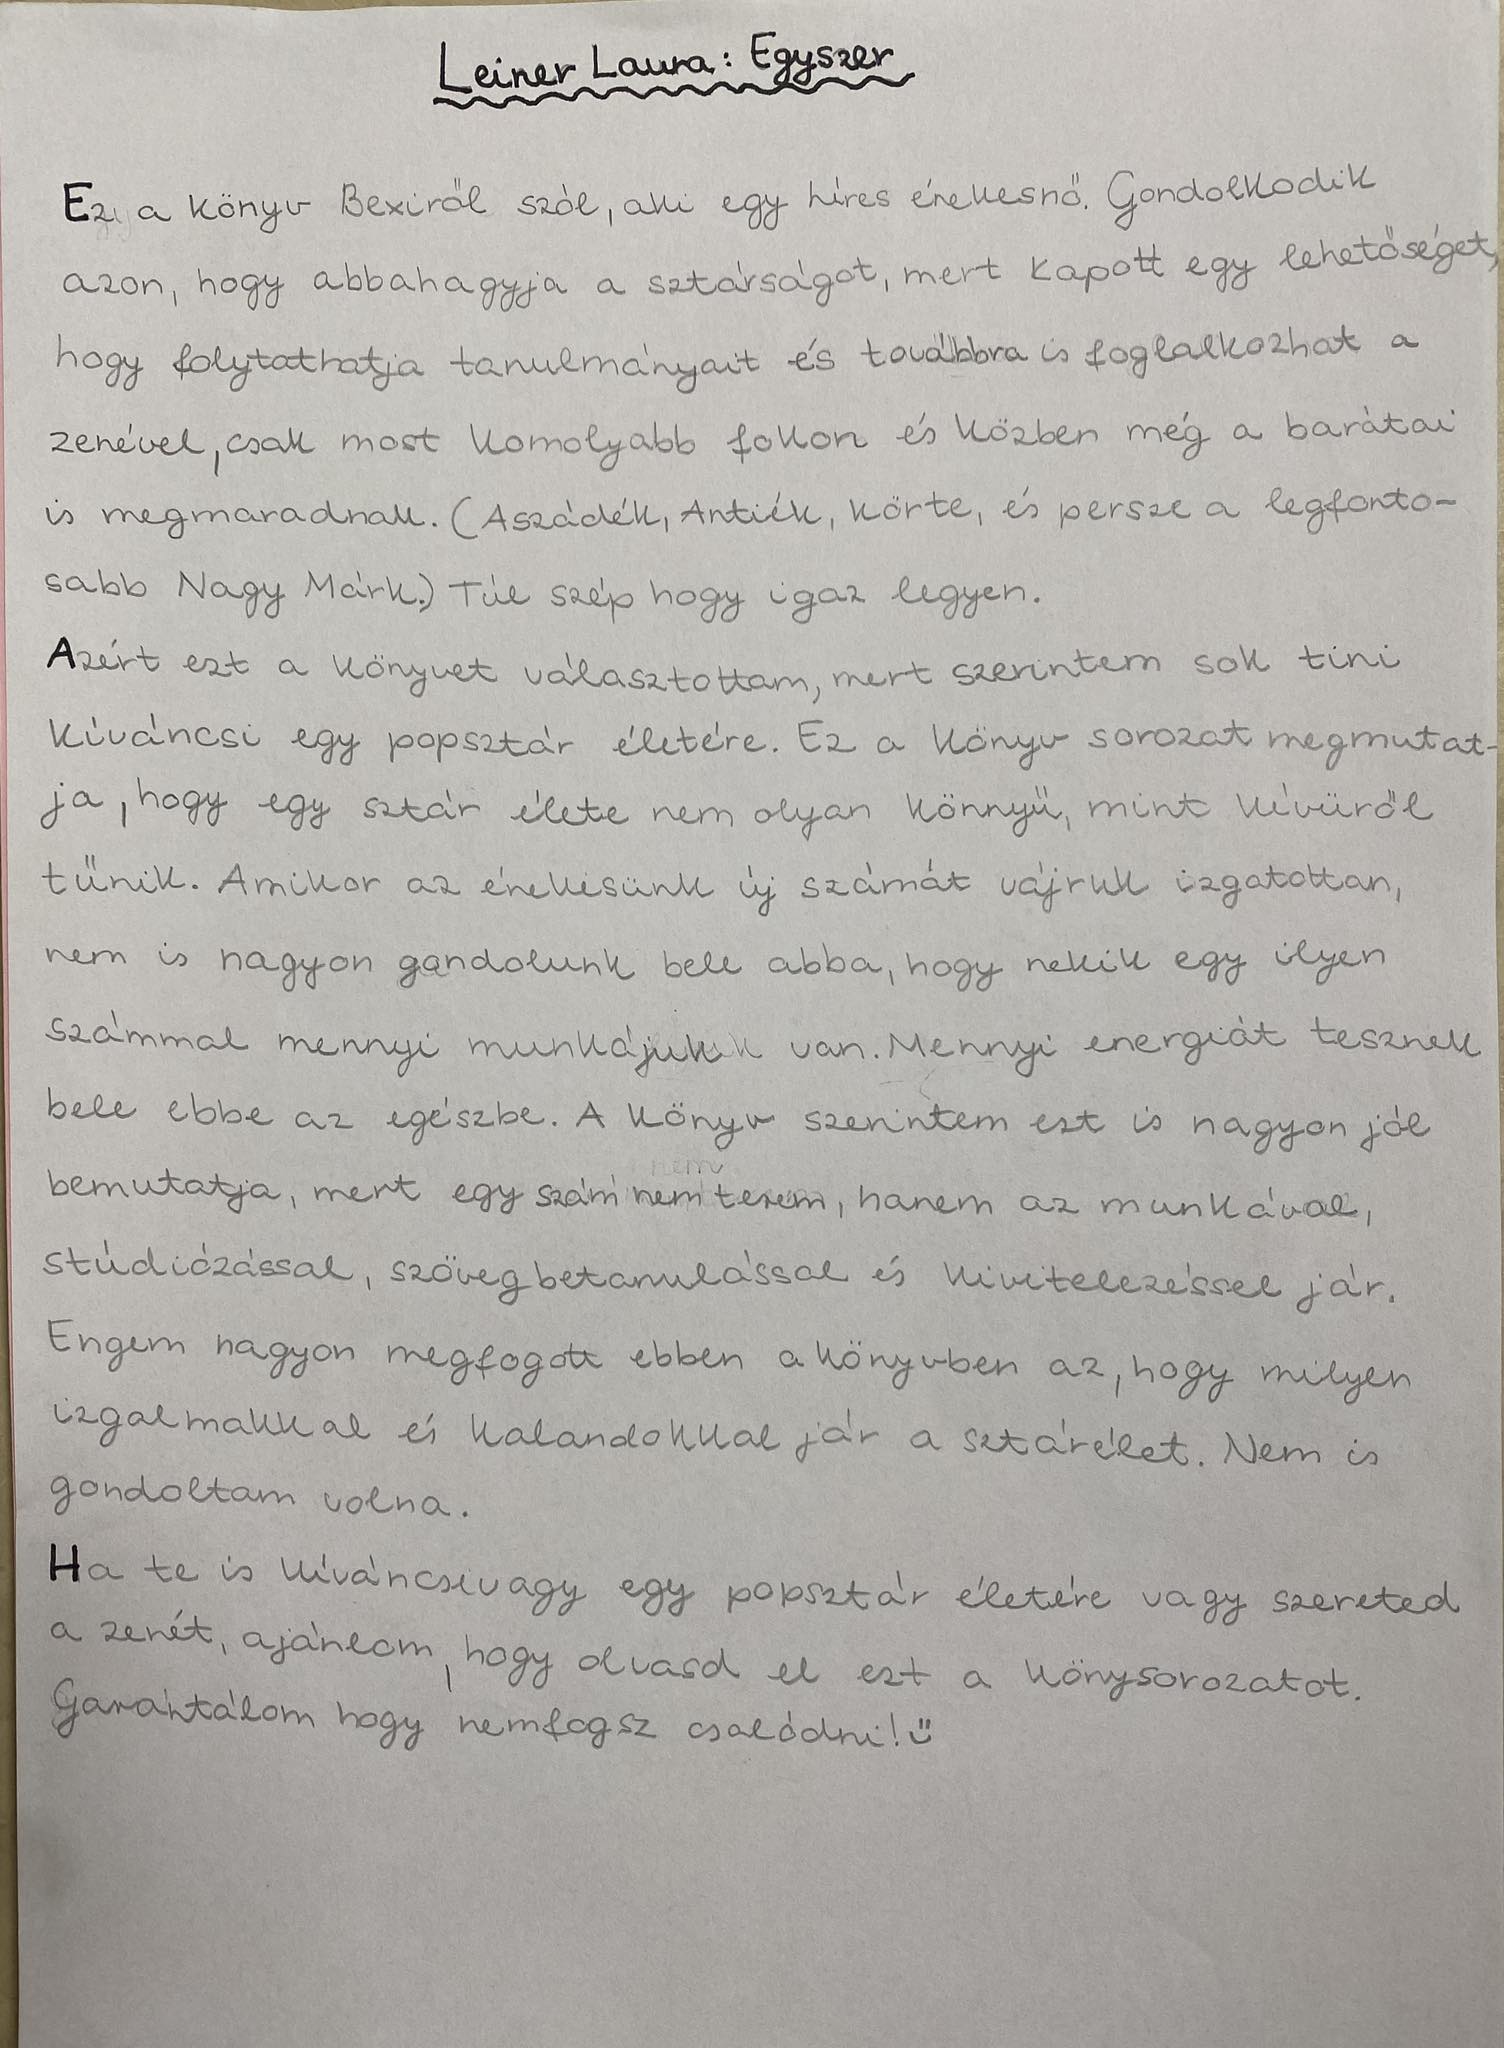 Leiner Laura: Egyszer
Ez a könyv Bexiről szól, aki egy híres énekesnő. Gondolkodik
azon, hogy abbahagyja a sztárságot, mert kapott egy lehetőséget,
hogy folytathatja tanulmányait és továbbra is foglalkozhat a
zenével, csak most komolyabb fokon és közben még a barátai
is megmaradnak. (Aszádék, Antiék, Körte, és persze a legfonto-
sabb Nagy Márk.) Túl szép hogy igaz legyen.
Azért ezt a könyvet választottam, mert szerintem sok tini
kíváncsi egy popsztár életére. Ez a könyv sorozat megmutat-
ja, hogy egy sztár élete nem olyan könnyű, mint kívüről
tűnik. Amikor az énekesünk új számát vájruk izgatottan,
nem is nagyon gondolunk bele abba, hogy nekik egy ilyen
számmal mennyi munkájuk van. Mennyi energiát tesznek
bele ebbe az egészbe. A könyv szerintem ezt is nagyon jól
bemutatja, mert egy szám nem terem, hanem az munkával,
stúdiózással, szövegbetanulással és kivitelezéssel jár.
Engem nagyon megfogott ebben a könyvben az, hogy milyen
izgalmakkal és kalandokkal jár a sztárélet. Nem is
gondoltam volna.
Ha te is kíváncsi vagy egy popsztár életére vagy szereted
a zenét, ajánlom, hogy olvasd el ezt a könysorozatot.
Garantálom hogy nemfogsz csalódni!